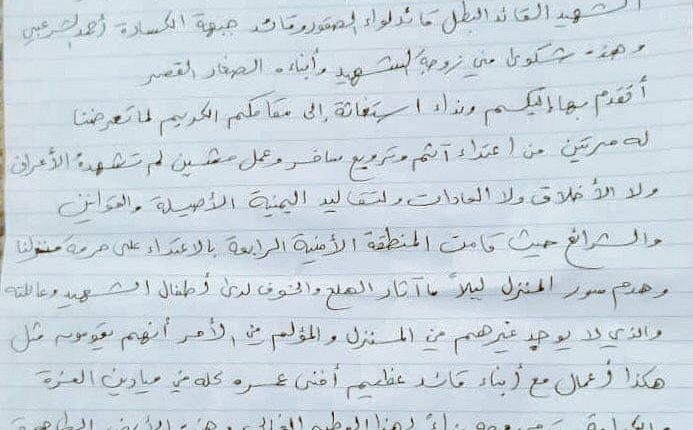 الشهيد القائد البطل قائد لواء الصقور وقائد جبهة الكسارة أحمد الشرعبي
وهذه شكوى مني زوجة الشهيد وأبناءه الصغار القصر
أتقدم بها إليكم ونداء استغاثة إلى مقامكم الكريم لما تعرضنا
له مرتين من اعتداء آثم وترويع سافر وعمل مشين لم تشهدة الأعراف
ولا الأخلاق ولا العادات ولتقاليد اليمنية الأصيلة والقوانين
والشرائع حيث قامت المنطقة الأمنية الرابعة بالاعتداء على حرمة منزلنا
وهدم سور المنزل ليلاً ما آثار الهلع والخوف لدى أطفال الشهيد وعائلته
والذي لا يوجد غيرهم في المنزل والمؤلم في الأمر أنهم يقومون مثل
هكذا أعمال مع أبناء قائد عظيم أفنى عمره كله في ميادين العزة